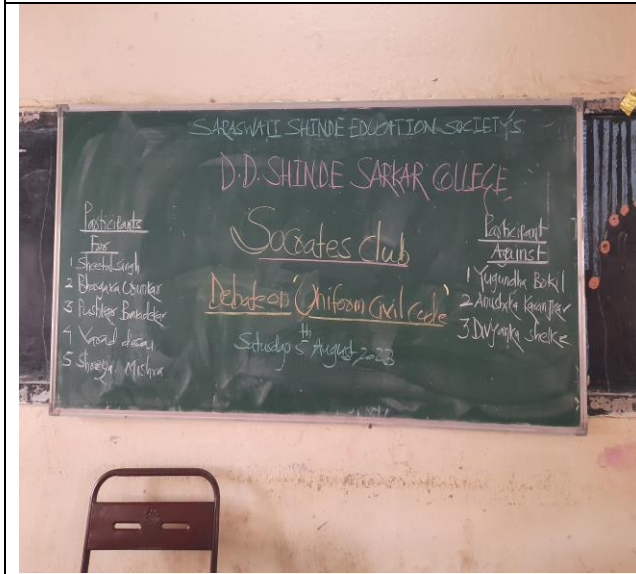 SARASWATI SHINDE EDUCATION SOCIETY'S
D.D. SHINDE SARKAR COLLEGE
Socrates club
Debate on 'Uniform Civil code'
Saturday 5th August 2023
Participants
For
1 Sheetal Singh
2
3 Pushkar
4 Varad desai
5 Shreya Mishra
Participant
Against
1 Yugundha Bokil
2 Anushka Karanjkar
3 Divyanka Shelke